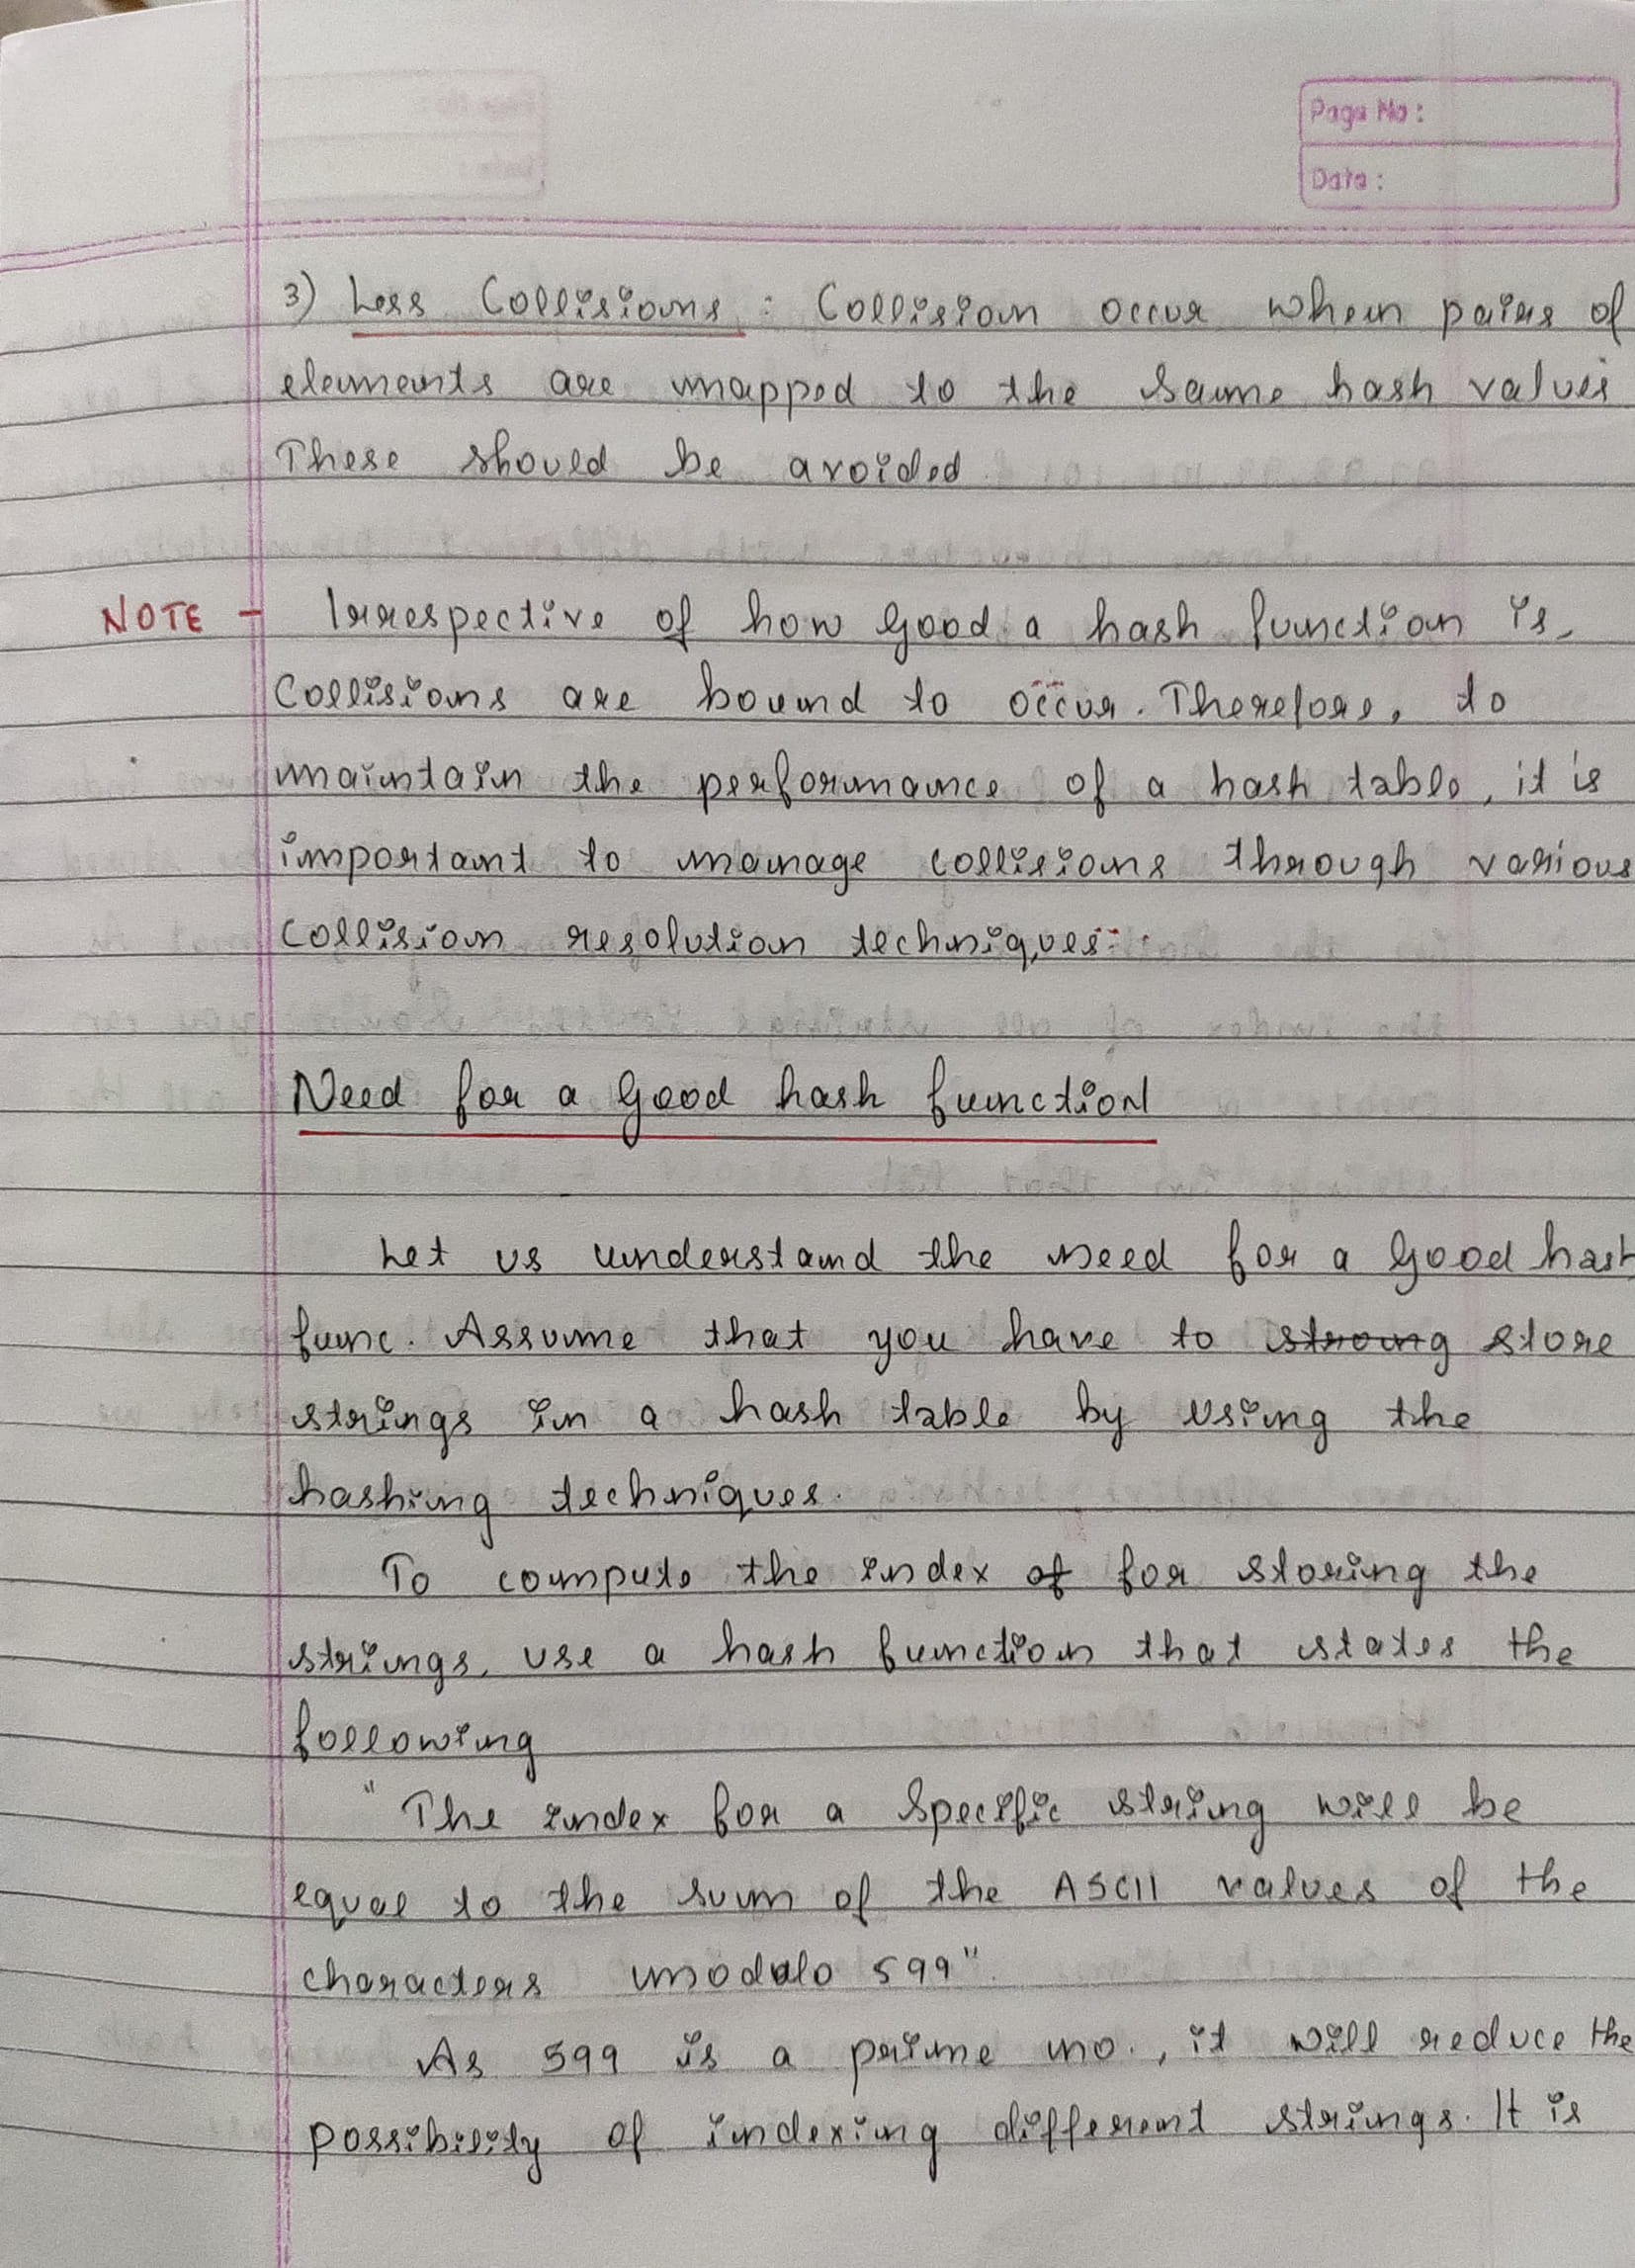 Page No :
Date :
3) Less Collisions : Collision occur when pairs of
elements are mapped to the same hash values
These should be avoided
NOTE - Irrespective of how good a hash function is,
Collisions are bound to occur. Therefore, to
maintain the performance of a hash table, it is
important to manage collisions through various
collision resolution techniques.
Need for a good hash function
Let us understand the need for a good hash
func. Assume that you have to strong store
strings in a hash table by using the
hashing techniques.
To compute the index of for storing the
strings, use a hash function that states the
following
"The index for a specific string will be
equal to the sum of the ASCII values of the
characters modulo 599"
As 599 is a prime no., it will reduce the
possibility of indexing different strings. It is